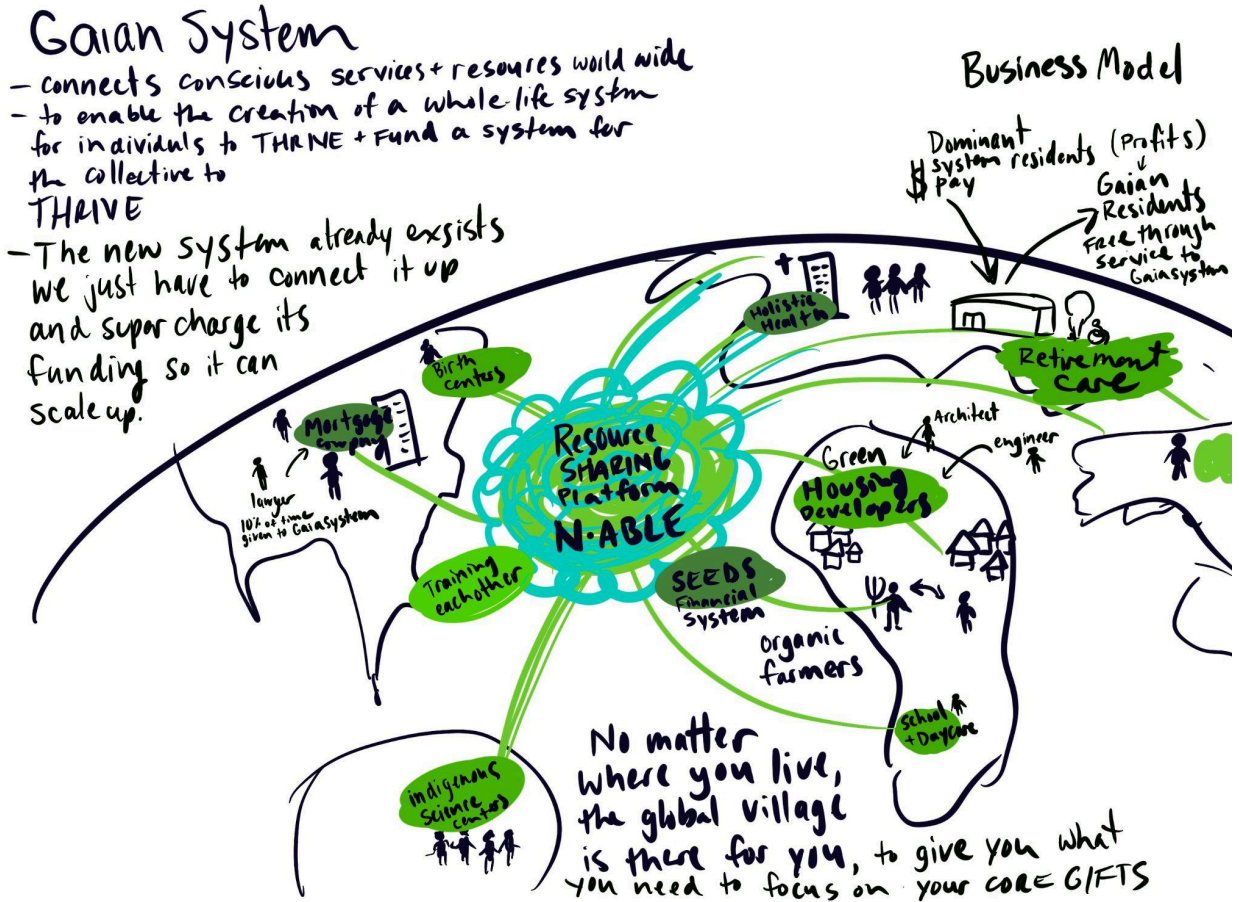 Gaian System
- connects conscius services + resoures world wide
- to enable the creation of a whole-life system
for individuls to THRIVE + Fund a system for
the collective to
THRIVE
- The new system already exsists
we just have to connect it up
and super charge its
funding so it can
scale up.
Business Model
Dominant
system residents
$ pay
(Profits)
Gaian
Residents
Free through
service to
Gaiasystem
+
Holistic
Health
Birth
centers
Retirement
care
Mortgage
company
lawyer
10% of time
given to Gaiasystem
Resource
SHARING
Platform
N·ABLE
Architect
engineer
Green
Housing
Developers
Training
eachother
SEEDS
Financial
System
organic
farmers
School
+ Daycare
indigenous
Science
centers
No matter
where you live,
the global village
is there for you, to give you what
you need to focus on your CORE GIFTS